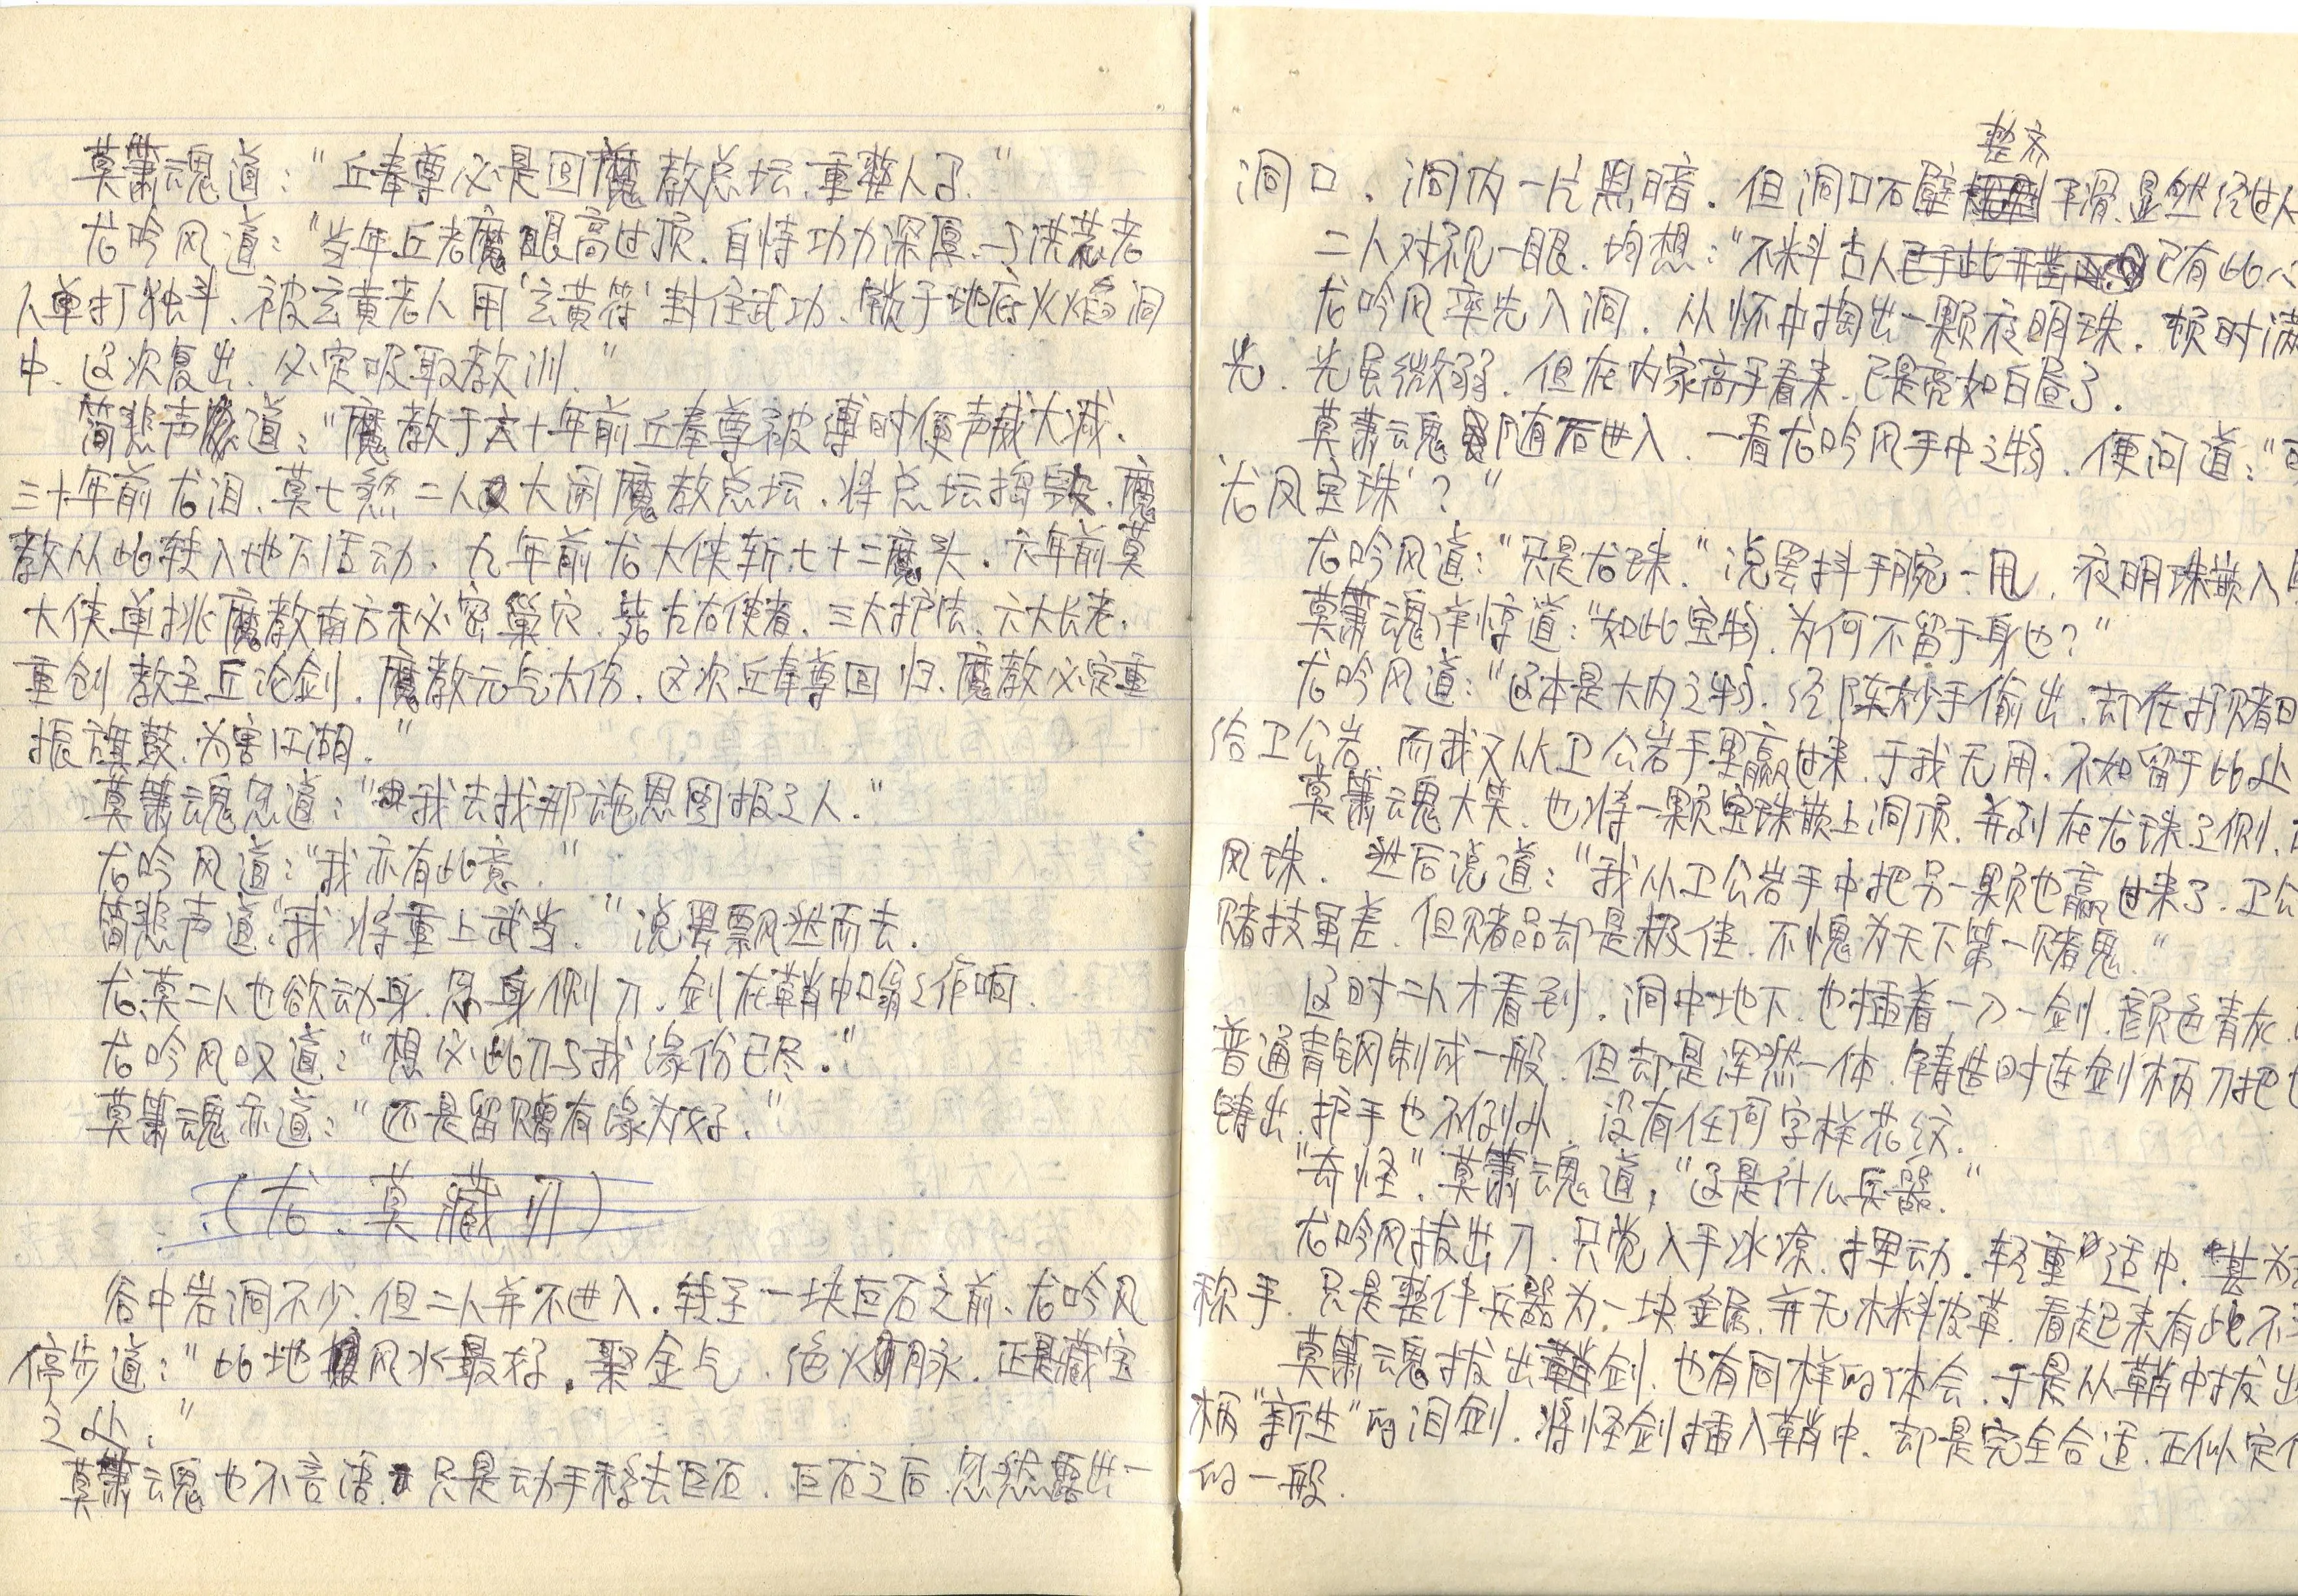 莫萧魂道：“丘奉尊必是回魔教总坛，重整人了.”
龙吟风道：“当年丘老魔眼高过顶，自恃功力深厚，与洪荒老
人单打独斗、被玄黄老人用‘玄黄符’封住武功、锁于地底火焰洞
中、这次复出、必定吸取教训.”
简悲声道：“魔教于六十年前丘奉尊被缚时便声威大减.
三十年前龙泪、莫七煞二人大闹魔教总坛，将总坛捣毁、魔
教从此转入地下活动、九年前龙大侠斩七十二魔头．六年前莫
大侠单挑魔教南方秘密巢穴、毙左右使者、三大护法、六大长老、
重创教主丘论剑、魔教元气大伤、这次丘奉尊回归、魔教必定重
振旗鼓，为害江湖.”
莫萧魂忽道：“我去找那施恩图报之人.”
龙吟风道：“我亦有此意.”
简悲声道：“我将重上武当.”说罢飘然而去.
龙、莫二人也欲动身，忽身侧刀、剑在鞘中嗡嗡作响.
龙吟风叹道：“想必此刀与我缘份已尽.”
莫萧魂亦道：“还是留赠有缘为好.”
（龙、莫藏刃）
谷中岩洞不少，但二人并不进入．转至一块巨石之前、龙吟风
停步道：“此地风水最好．聚金气、绝火脉．正是藏宝
之处.”
莫萧魂也不言语，只是动手移去巨石．巨石之后忽然露出一
整齐
洞口．洞内一片黑暗．但洞口石壁平滑，显然经过人
二人对视一眼．均想：“不料古人已于此开凿已有此
龙吟风率先入洞．从怀中掏出一颗夜明珠．顿时满
光．光虽微弱．但在内家高手看来、已是亮如白昼了．
莫萧魂随后进入．一看龙吟风手中之物．便问道：“
龙凤宝珠’？”
龙吟风道：“只是龙珠.”说罢抖手腕一甩，夜明珠嵌入
莫萧魂佯惊道：“如此宝物，为何不留于身边？”
龙吟风道：“这本是大内之物．经陈妙手偷出．却在打赌时
给卫公岩、而我又从卫公岩手里赢过来．于我无用．不如留于此处
莫萧魂大笑．也将一颗宝珠嵌上洞顶．并列在龙珠之侧．
凤珠．然后说道：“我从卫公岩手中把另一颗也赢过来了．卫公
赌技虽差．但赌品却是极佳．不愧为天下第一赌鬼.”
这时二人才看到，洞中地下，也插着一刀一剑．颜色青灰．
普通青钢制成一般．但却是浑然一体．铸造时连剑柄刀把也
铸出．护手也不例外．没有任何字样花纹．
“奇怪”．莫萧魂道，“这是什么兵器.”
龙吟风拔出刀．只觉入手冰凉．挥动．轻重适中．甚为
称手．只是整件兵器为一块金属，并无木料皮革．看起来有些不
莫萧魂拔出剑．也有同样的体会．于是从鞘中拔出
柄“新生”的泪剑．将怪剑插入鞘中．却是完全合适．正似定作
的一般．